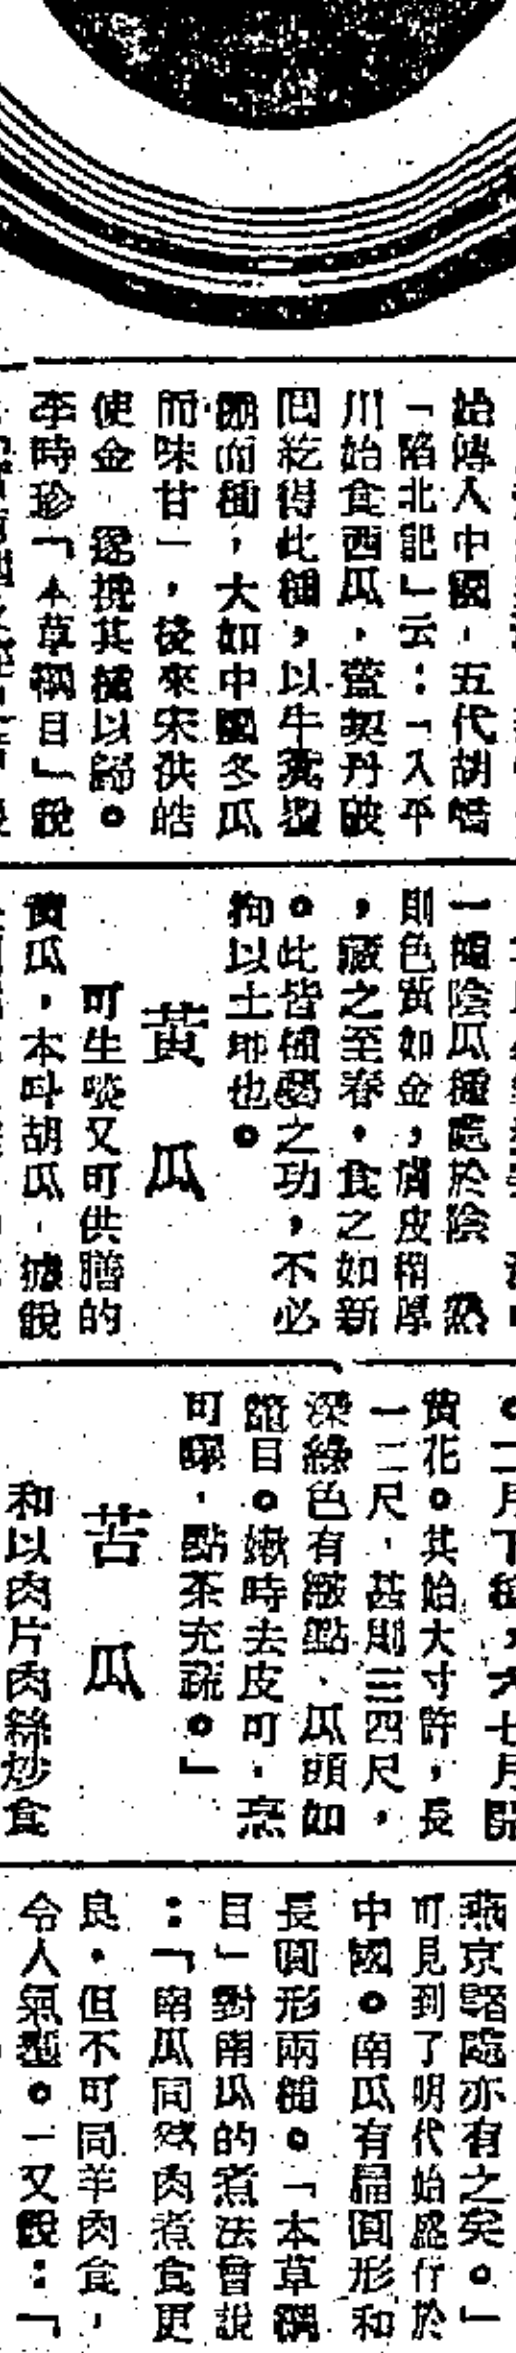 始傳入中國，五代胡嶠
「陷北記」云：「入平
川始食西瓜，蓋契丹破
回紇得此種，以牛糞覆
棚而種，大如中國冬瓜
而味甘」，後來宋洪皓
使金　遂携其種以歸。
李時珍「本草綱目」說
一種陰瓜種處於陰　熟
則色黃如金，膚皮稍厚
，藏之至春，食之如新
。此皆種藝之功，不必
拘以土地也。
黃瓜
可生啖又可供膳的
黃瓜，本叫胡瓜，據說
。二月下種，六七月開
黄花。其始大寸許，長
一二尺，甚則三四尺，
深綠色有皺點，瓜頭如
龍目。嫩時去皮可，烹
可曝，點茶充蔬。」
苦瓜
和以肉片肉絲炒食
燕京諸處亦有之矣。」
可見到了明代始盛行於
中國。南瓜有扁圓形和
長圓形兩種。「本草綱
目」對南瓜的煮法曾說
：「南瓜同猪肉煮食更
良，但不可同羊肉食，
令人氣壅。一又說：「